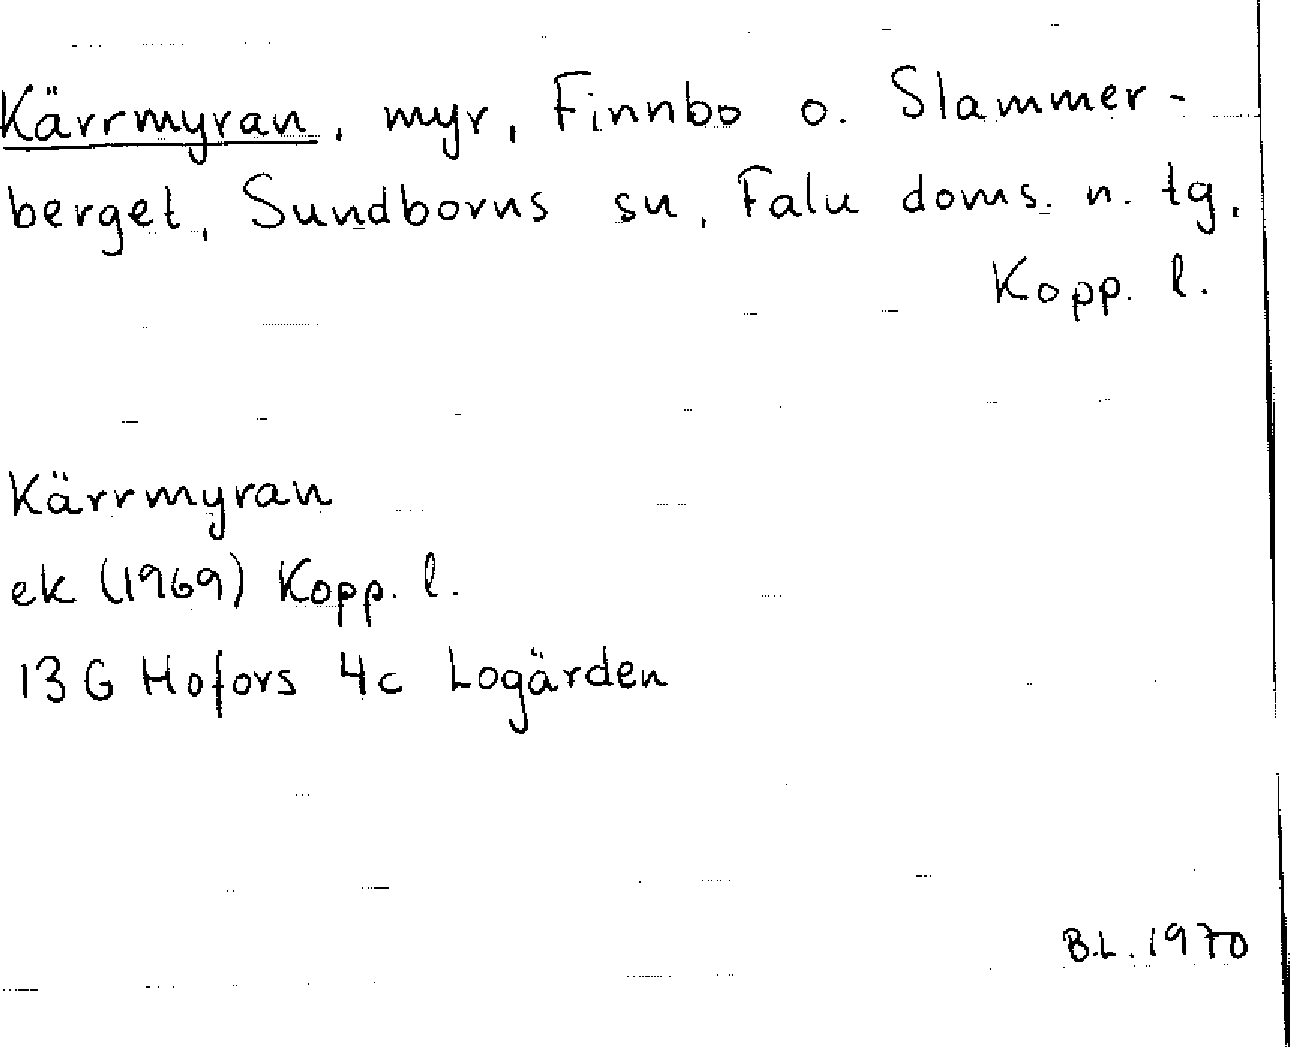 Kärrmyran, myr, Finnbo o. Slammer-
berget, Sundborns sn, Falu doms. n. tg,
Kopp. l.
Kärrmyran
ek (1969) Kopp. l.
13 G Hofors 4c Logärden
B.L. 1970